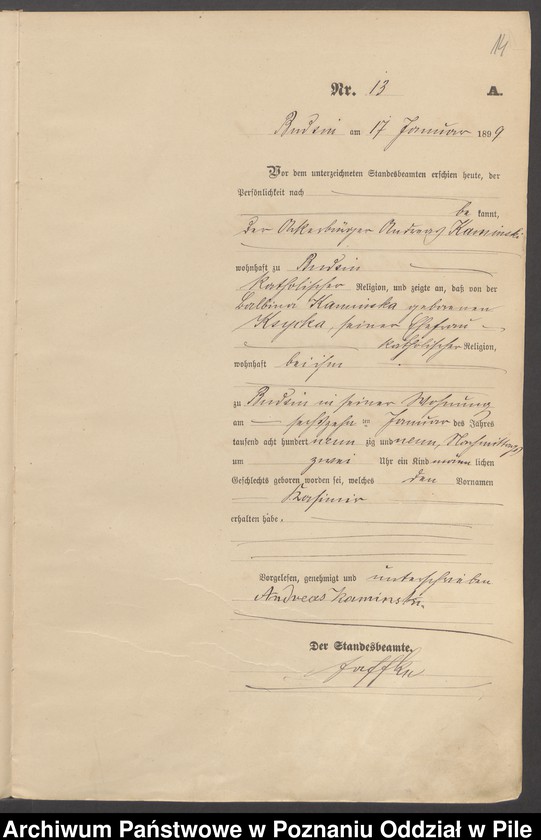 14
Nr. 13 A.
Budsin am 17 Januar 1899
Vor dem unterzeichneten Standesbeamten erschien heute, der
Persönlichkeit nach
be kannt,
der Ackerbürger Andreas Kaminski
wohnhaft zu Budsin
katholischer Religion, und zeigte an, daß von der
Balbina Kaminska geborenen
Ksycka, seiner Ehefrau
katholischer Religion,
wohnhaft bei ihm
zu Budsin in seiner Wohnung
am sechszehn ten Januar des Jahres
tausend acht hundert neun zig und neun, Nachmittags
um zwei Uhr ein Kind männ lichen
Geschlechts geboren worden sei, welches den Vornamen
Kasimir
erhalten habe.
Vorgelesen, genehmigt und unterschrieben
Andreas Kaminski.
Der Standesbeamte.
Archiwum Państwowe w Poznaniu Oddział w Pile